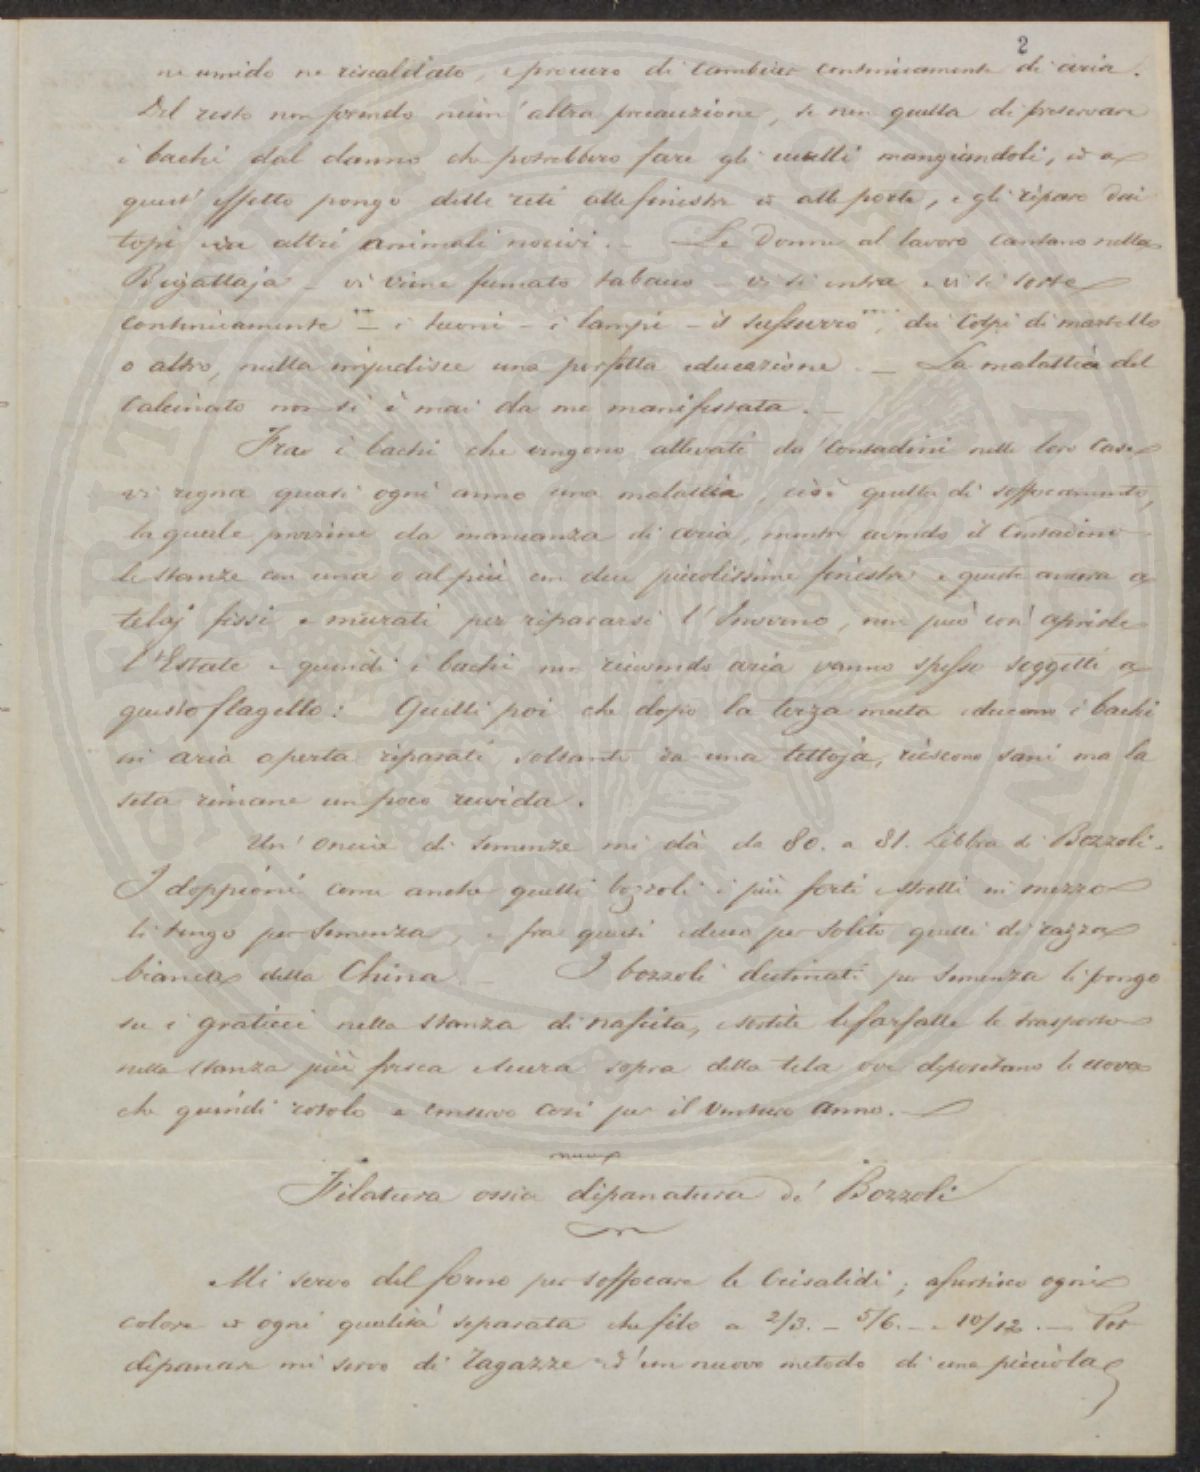 2
ne umido ne riscaldato, e procuro di cambiar continuamente di aria.
Del resto non prendo niun' altra precauzione, se non quella di preservare
i bachi dal danno che potrebbero fare gli uccelli mangiandoli, ed a
quest' effetto pongo delle reti alle finestre ed alle porte, e gli riparo dai
topi ed altri animali nocivi. — Le Donne al lavoro cantano nella
Bigattaja — vi viene fumato tabacco — vi si entra e vi si sorte
continuamente — i tuoni — i lampi — il sussurro, dei colpi di martello
o altro, nulla impedisce una perfetta educazione. — La malattia del
Calcinato non si è mai da me manifestata. —
Fra i bachi che vengono allevati da' Contadini nelle loro Case
vi regna quasi ogni anno una malattia, cioè quella di soffocamento,
la quale proviene da mancanza di aria, mentre avendo il Contadino
le stanze con una o al più con due piccolissime finestre e queste ancora a
telaj fissi e murati per ripararsi l' Inverno, non può così aprirle
l' Estate e quindi i bachi non ricevendo aria vanno spesso soggetti a
questo flagello: Quelli poi che dopo la terza muta educano i bachi
in aria aperta riparati soltanto da una tettoja, riescono sani ma la
seta rimane un poco ruvida.
Un' Oncia di semenza mi dà da 80. a 81. Libbra di Bozzoli.
I doppioni come anche quelli bozzoli i più forti e stretti in mezzo
li tengo per Semenza, e fra questi educo per solito quelli di razza
bianca della China. — I bozzoli destinati per Semenza li pongo
su i graticci nella stanza di nascita, e sortite le farfalle le trasporto
nella stanza più fresca e scura sopra della tela ove depositano le uova
che quindi e conservo così per il venturo anno. —
Filatura ossia dipanatura de' Bozzoli
Mi servo del forno per soffocare le Crisalidi; ogni
colore ed ogni qualità separata che filo a 2/3. — 5/6. — e 10/12. — Per
dipanare mi servo di Ragazze e d' un nuovo metodo di una picciola